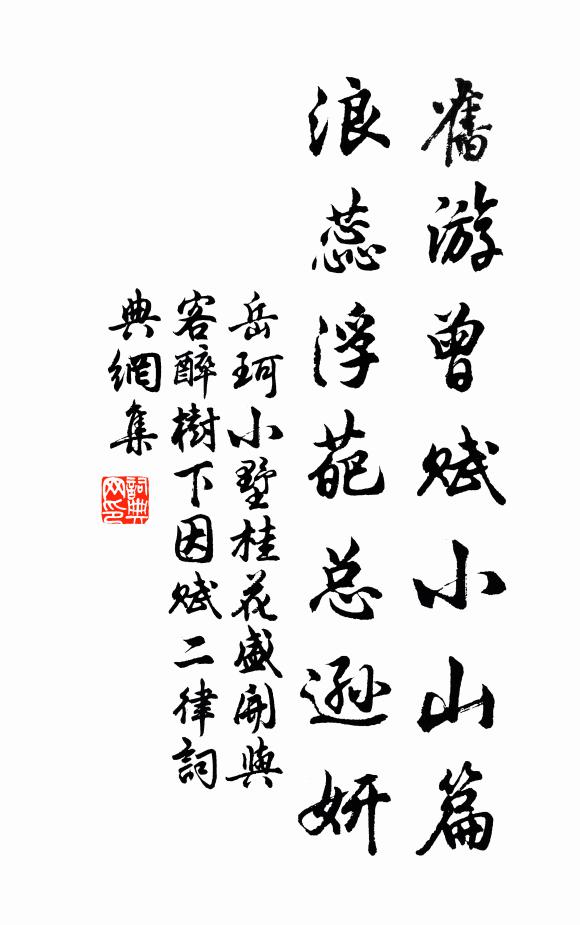 舊游曾賦小山篇
浪蕊浮葩总遜妍
岳珂小墅桂花盛開與
客醉樹下因賦二律詞
典網集
詞典
网印